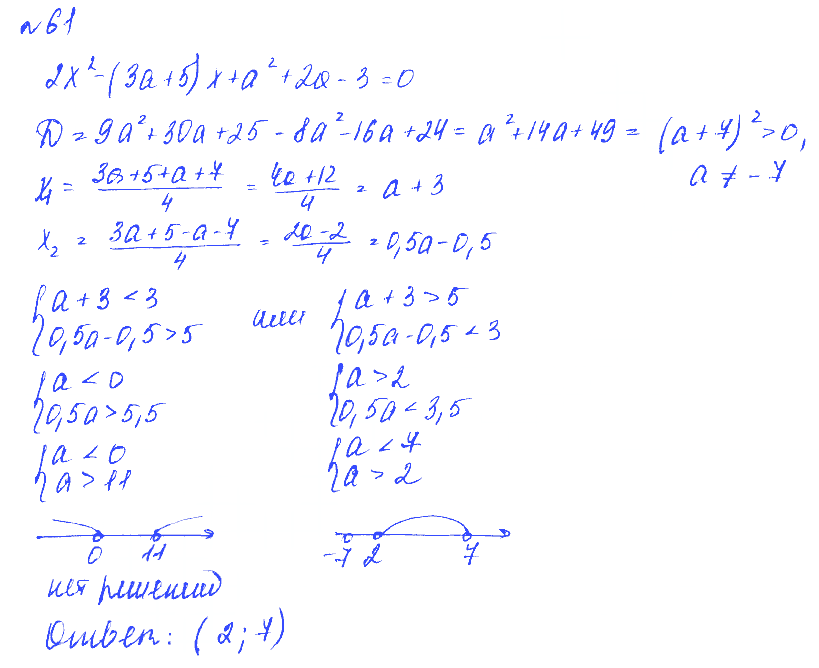 №61
2x² - (3a + 5)x + a² + 2a - 3 = 0
D = 9a² + 30a + 25 - 8a² - 16a + 24 = a² + 14a + 49 = (a + 7)² > 0,
a ≠ -7
x₁ = (3a + 5 + a + 7)/4 = (4a + 12)/4 = a + 3
x₂ = (3a + 5 - a - 7)/4 = (2a - 2)/4 = 0,5a - 0,5
{ a + 3 < 3 или { a + 3 > 5
{ 0,5a - 0,5 > 5 { 0,5a - 0,5 < 3
{ a < 0 { a > 2
{ 0,5a > 5,5 { 0,5a < 3,5
{ a < 0 { a < 7
{ a > 11 { a > 2
0 11 -7 2 7
нет решений
Ответ: (2; 7)